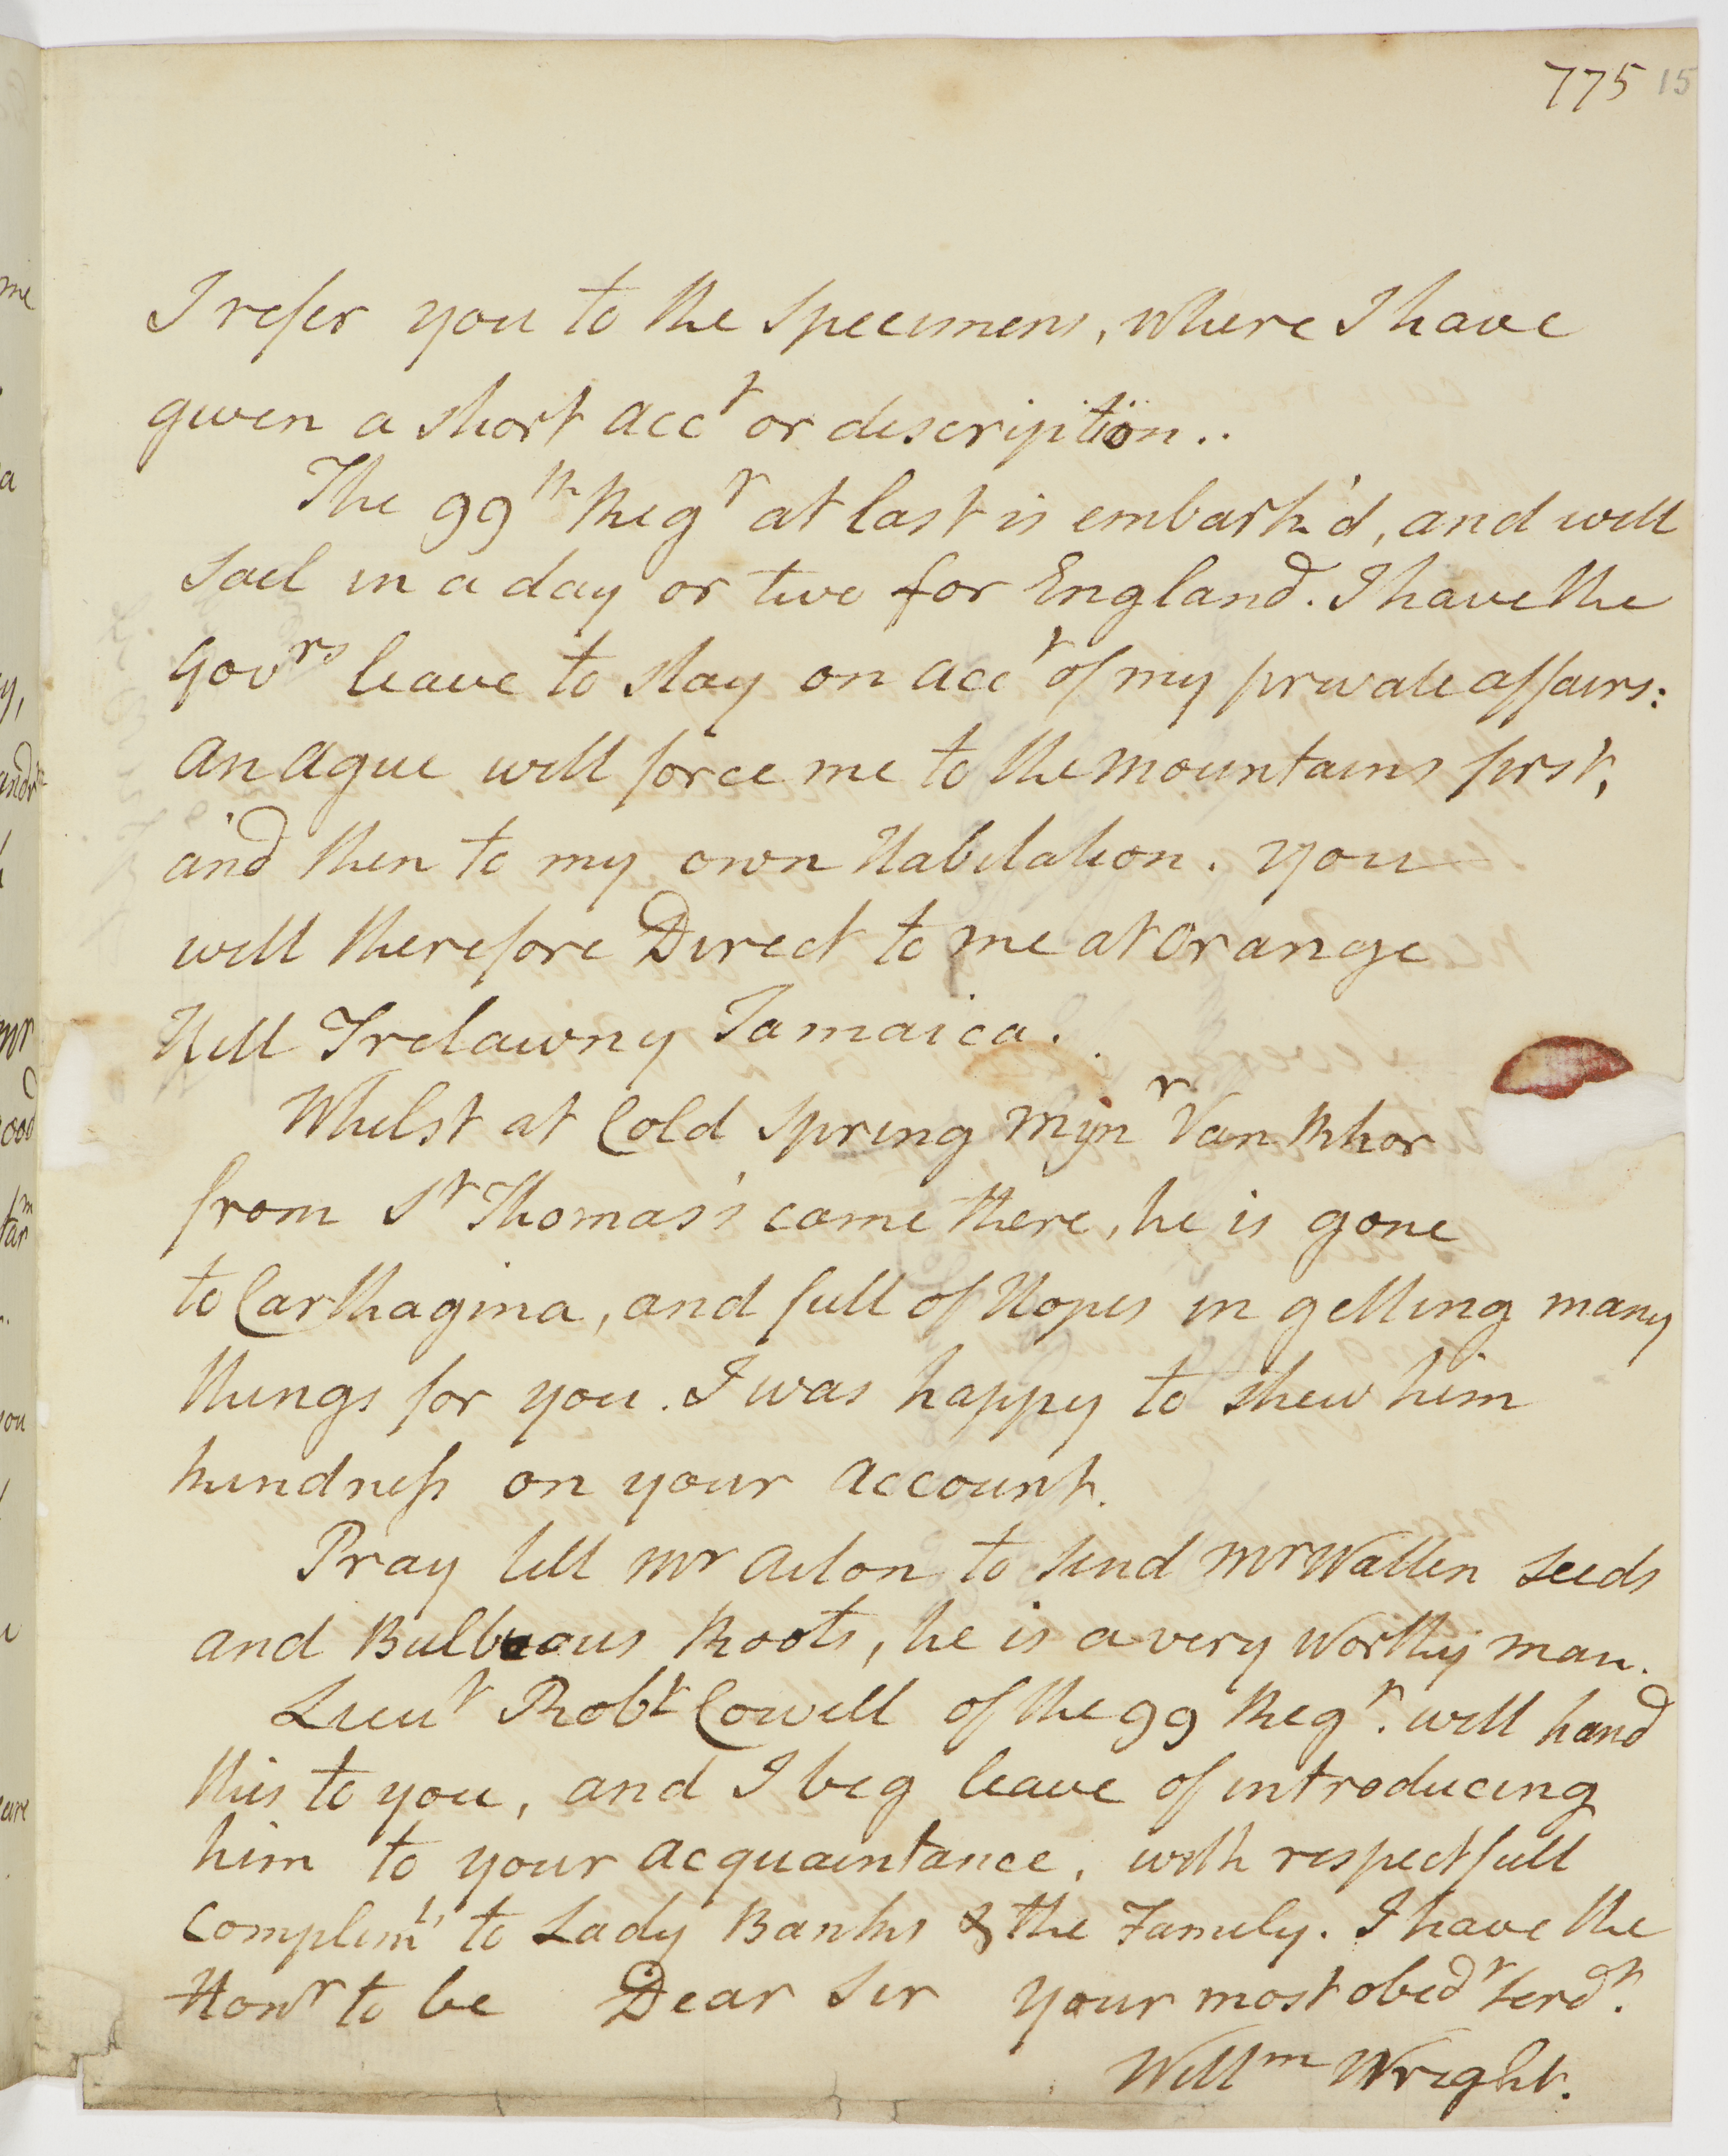 775 15
I refer you to the Specimens, where I have
given a short acct or description..
The 99th Regt at last is embark'd, and will
sail in a day or two for England. I have the
Govrs leave to stay on acct of my private affairs:
an ague will force me to the mountains first,
and then to my own Habitation. you
will therefore Direct to me at Orange
Hill Trelawny Jamaica.
Whilst at Cold Spring Mynr Van Rhor
from St Thomas's came there, he is gone
to Carthagina, and full of Hopes in getting many
things for you. I was happy to shew him
kindness on your account.
Pray tell Mr Aiton to send Mr Wallen seeds
and Bulbuous Roots, he is a very worthy man.
Lieut Robt Cowell of the 99 Regt. will hand
this to you, and I beg leave of introducing
him to your acquaintance, with respectfull
Complimts to Lady Banks & the Family. I have the
Honr to be Dear Sir your most obedt Serdt.
Willm Wright.